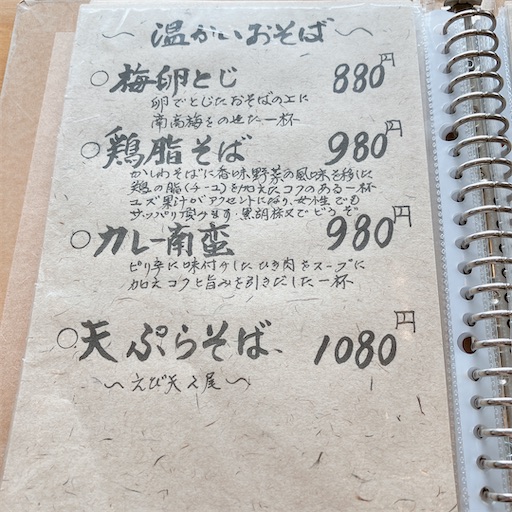 〜温かいおそば〜
○梅卵とじ 880円
卵でとじたおそばの上に
南高梅をのせた一杯
○鶏脂そば 980円
かしわそばに香味野菜の風味を移した
鶏の脂(チーユ)を加えたコクのある一杯
ユズ果汁がアクセントになり、女性でも
サッパリ頂けます。黒胡椒又でどうぞ
○カレー南蛮 980円
ピリ辛に味付けしたひき肉をスープに
加えコクと旨みを引きだした一杯
○天ぷらそば 1080円
〜えび天2尾〜